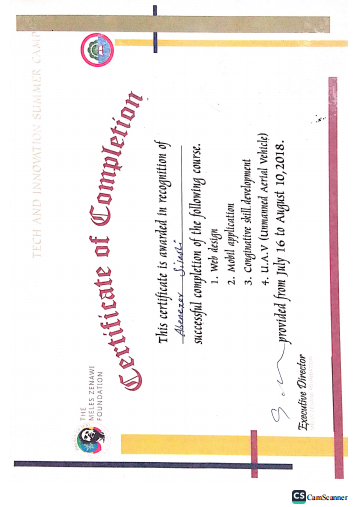 TECH AND INNOVATION SUMMER CAMP
THE
MELES ZENAWI
FOUNDATION
Certificate of Completion
This certificate is awarded in recognition of
Abenezer
successful completion of the following course.
1. Web design
2. Mobil application
3. Conginative skill development
4. U.A.V (Unmanned Aerial Vehicle)
provided from July 16 to August 10,2018.
Executive Director
CS CamScanner